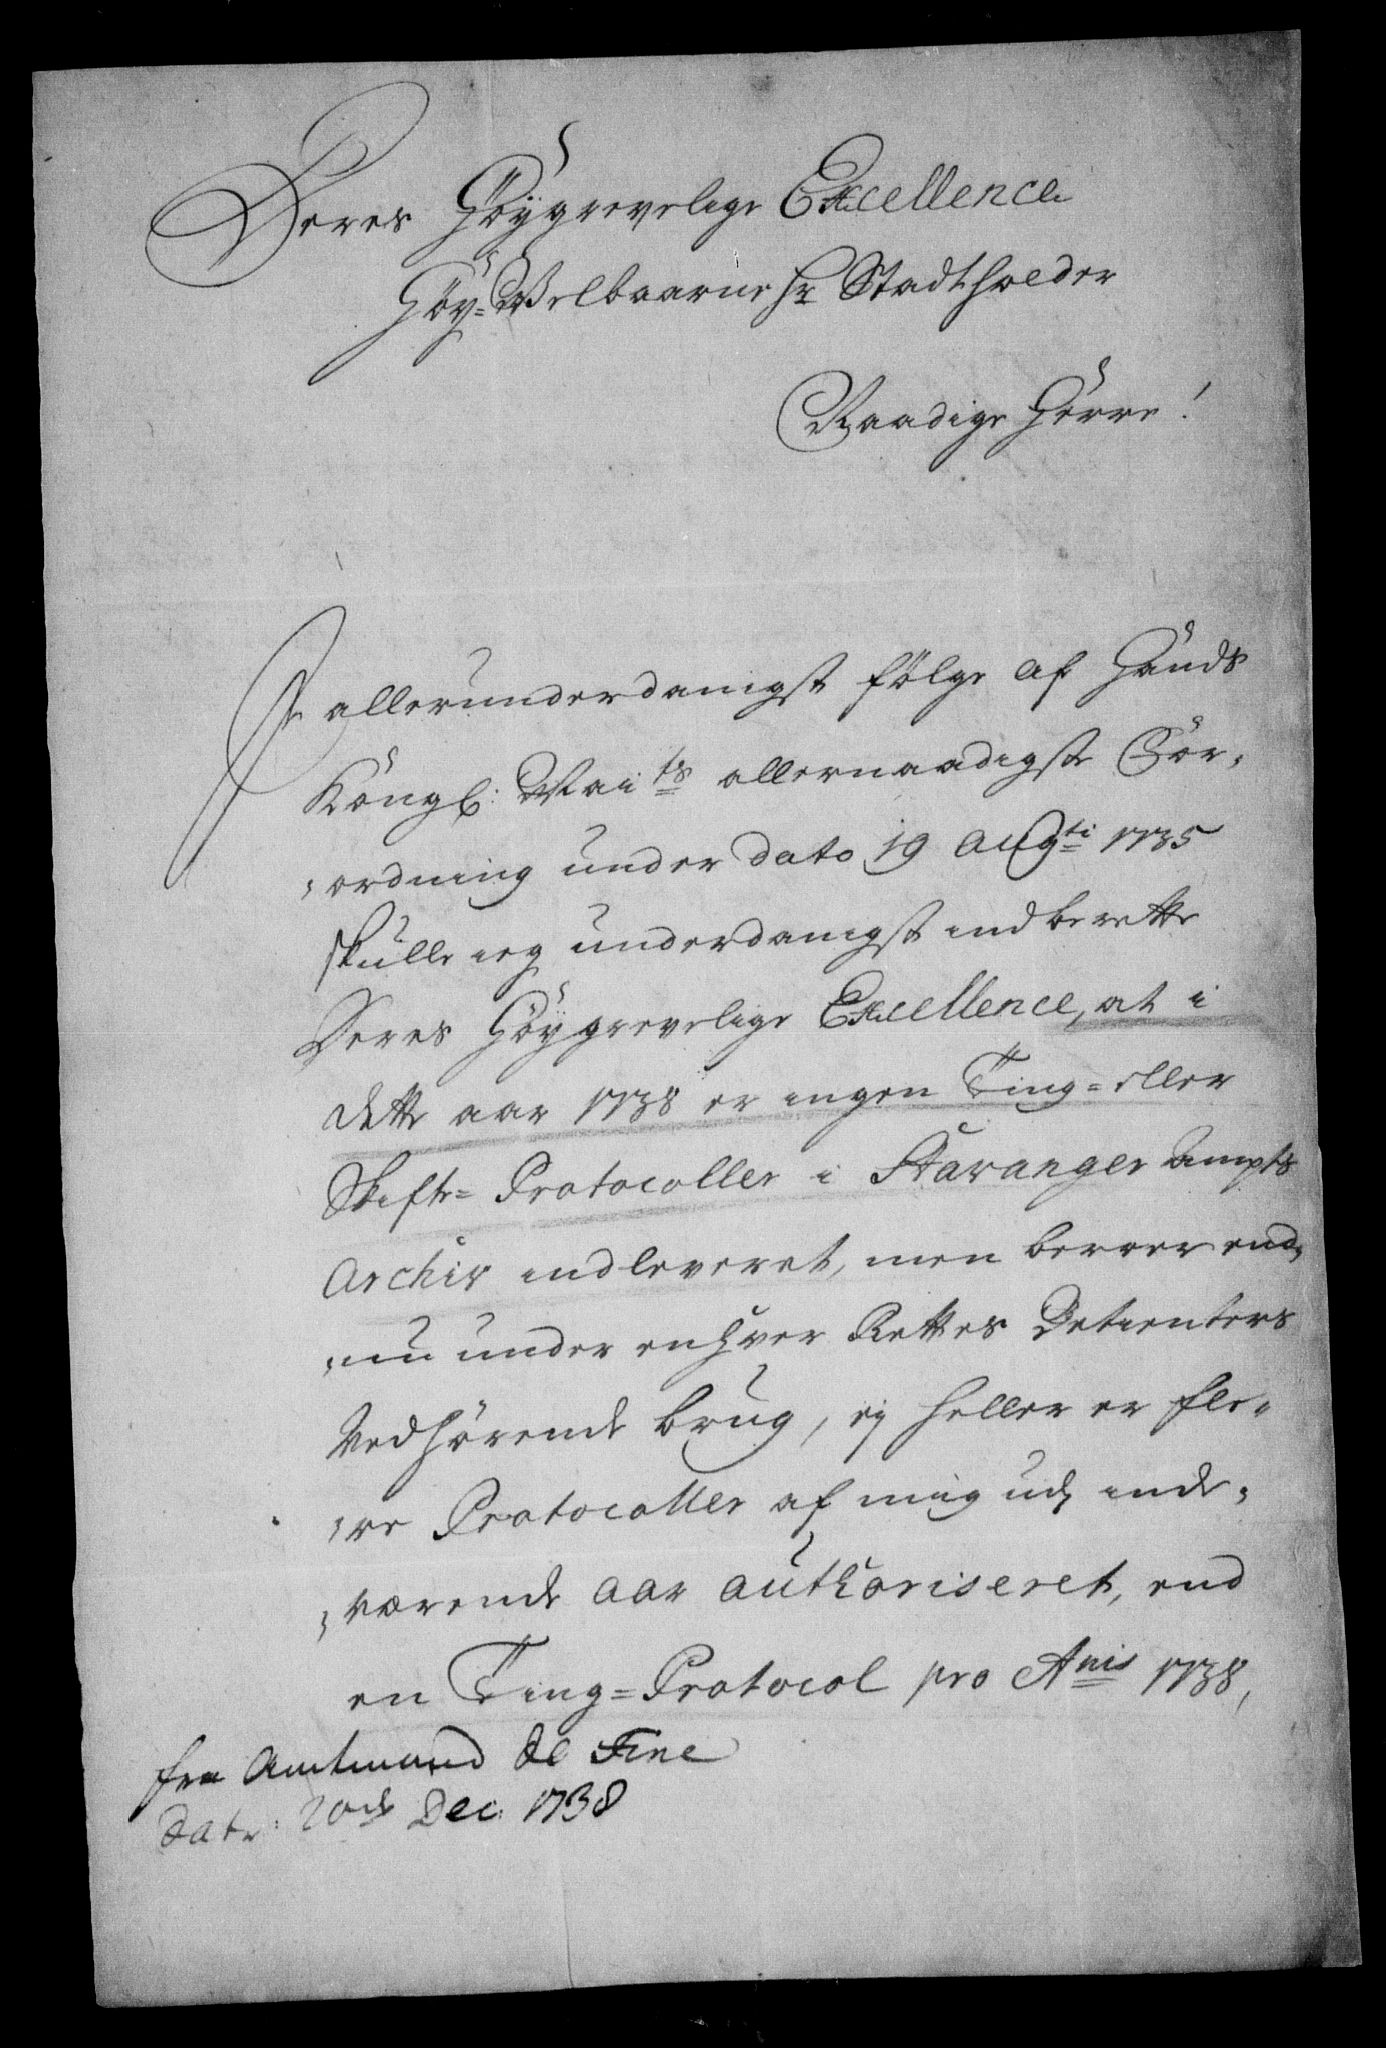 Deres Höygrevelige Excellence
Höy-Welbaarne hr Stadtholder
Naadige Herre!
I allerunderdanigst fölge af Hands
Kongl: Maits allernaadigste For-
ordning under dato 19 Augti 1735
skulle ieg underdanigst indberette
Deres Höygrevelige Excellence, at i
dette aar 1738 er ingen Ting- eller
Skifte- Protocoller i Stavanger Ampts
Archiv indleveret, men beroer end-
nu under enhver Rettes Betienters
Vedhörende brug, ej heller er fle-
re Protocoller af mig udj inde-
værende aar authoriseret, end
en Ting-Protocol pro Anis 1738,
fra Amtmand de Fine
Dater: 20de Dec: 1738